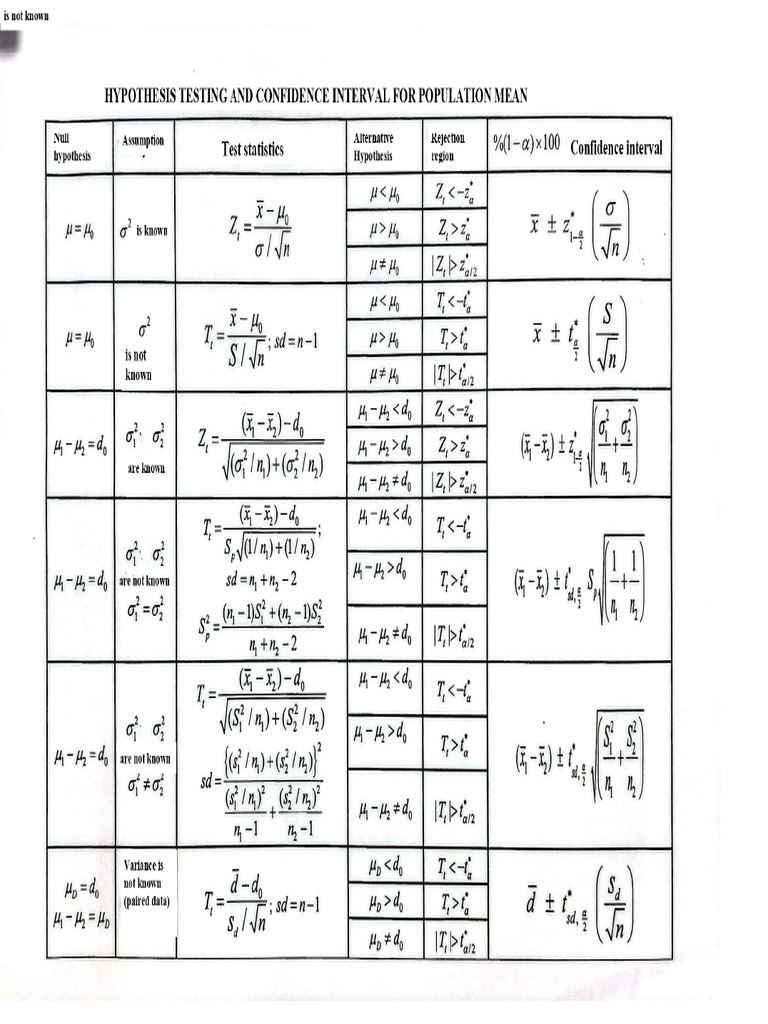 is not known
HYPOTHESIS TESTING AND CONFIDENCE INTERVAL FOR POPULATION MEAN
Null hypothesis | Assumption | Test statistics | Alternative Hypothesis | Rejection region | %(1−α)×100 Confidence interval
μ = μ₀ | σ² is known | Zₜ = (x̄ − μ₀) / (σ/√n) | μ < μ₀ | Zₜ < −z*_α | x̄ ± z*_{1−α/2} (σ/√n)
μ > μ₀ | Zₜ > z*_α
μ ≠ μ₀ | |Zₜ| > z*_{α/2}
μ = μ₀ | σ² is not known | Tₜ = (x̄ − μ₀) / (S/√n) ; sd = n−1 | μ < μ₀ | Tₜ < −t*_α | x̄ ± t*_{α/2} (S/√n)
μ > μ₀ | Tₜ > t*_α
μ ≠ μ₀ | |Tₜ| > t*_{α/2}
μ₁ − μ₂ = d₀ | σ₁², σ₂² are known | Zₜ = ((x̄₁ − x̄₂) − d₀) / √((σ₁²/n₁) + (σ₂²/n₂)) | μ₁ − μ₂ < d₀ | Zₜ < −z*_α | (x̄₁ − x̄₂) ± z*_{1−α/2} √(σ₁²/n₁ + σ₂²/n₂)
μ₁ − μ₂ > d₀ | Zₜ > z*_α
μ₁ − μ₂ ≠ d₀ | |Zₜ| > z*_{α/2}
μ₁ − μ₂ = d₀ | σ₁², σ₂² are not known σ₁² = σ₂² | Tₜ = ((x̄₁ − x̄₂) − d₀) / (S_p √((1/n₁) + (1/n₂))) ; sd = n₁ + n₂ − 2 S_p² = ((n₁ − 1)S₁² + (n₂ − 1)S₂²) / (n₁ + n₂ − 2) | μ₁ − μ₂ < d₀ | Tₜ < −t*_α | (x̄₁ − x̄₂) ± t*_{sd, α/2} S_p √(1/n₁ + 1/n₂)
μ₁ − μ₂ > d₀ | Tₜ > t*_α
μ₁ − μ₂ ≠ d₀ | |Tₜ| > t*_{α/2}
μ₁ − μ₂ = d₀ | σ₁², σ₂² are not known σ₁² ≠ σ₂² | Tₜ = ((x̄₁ − x̄₂) − d₀) / √((S₁²/n₁) + (S₂²/n₂)) sd = {(s₁²/n₁) + (s₂²/n₂)}² / ((s₁²/n₁)²/(n₁ − 1) + (s₂²/n₂)²/(n₂ − 1)) | μ₁ − μ₂ < d₀ | Tₜ < −t*_α | (x̄₁ − x̄₂) ± t*_{sd, α/2} √(S₁²/n₁ + S₂²/n₂)
μ₁ − μ₂ > d₀ | Tₜ > t*_α
μ₁ − μ₂ ≠ d₀ | |Tₜ| > t*_{α/2}
μ_D = d₀ μ₁ − μ₂ = μ_D | Variance is not known (paired data) | Tₜ = (d̄ − d₀) / (S_d/√n) ; sd = n−1 | μ_D < d₀ | Tₜ < −t*_α | d̄ ± t*_{sd, α/2} (S_d/√n)
μ_D > d₀ | Tₜ > t*_α
μ_D ≠ d₀ | |Tₜ| > t*_{α/2}